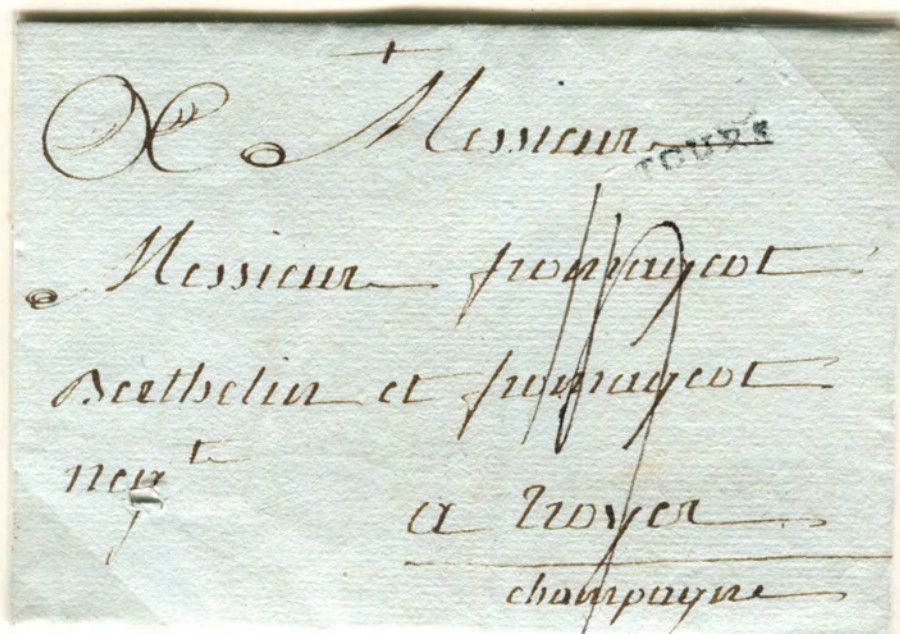 A Messieur
TOURS
Messieur fromageot
Berthelin et fromageot
neg te
a Troyes
champagne